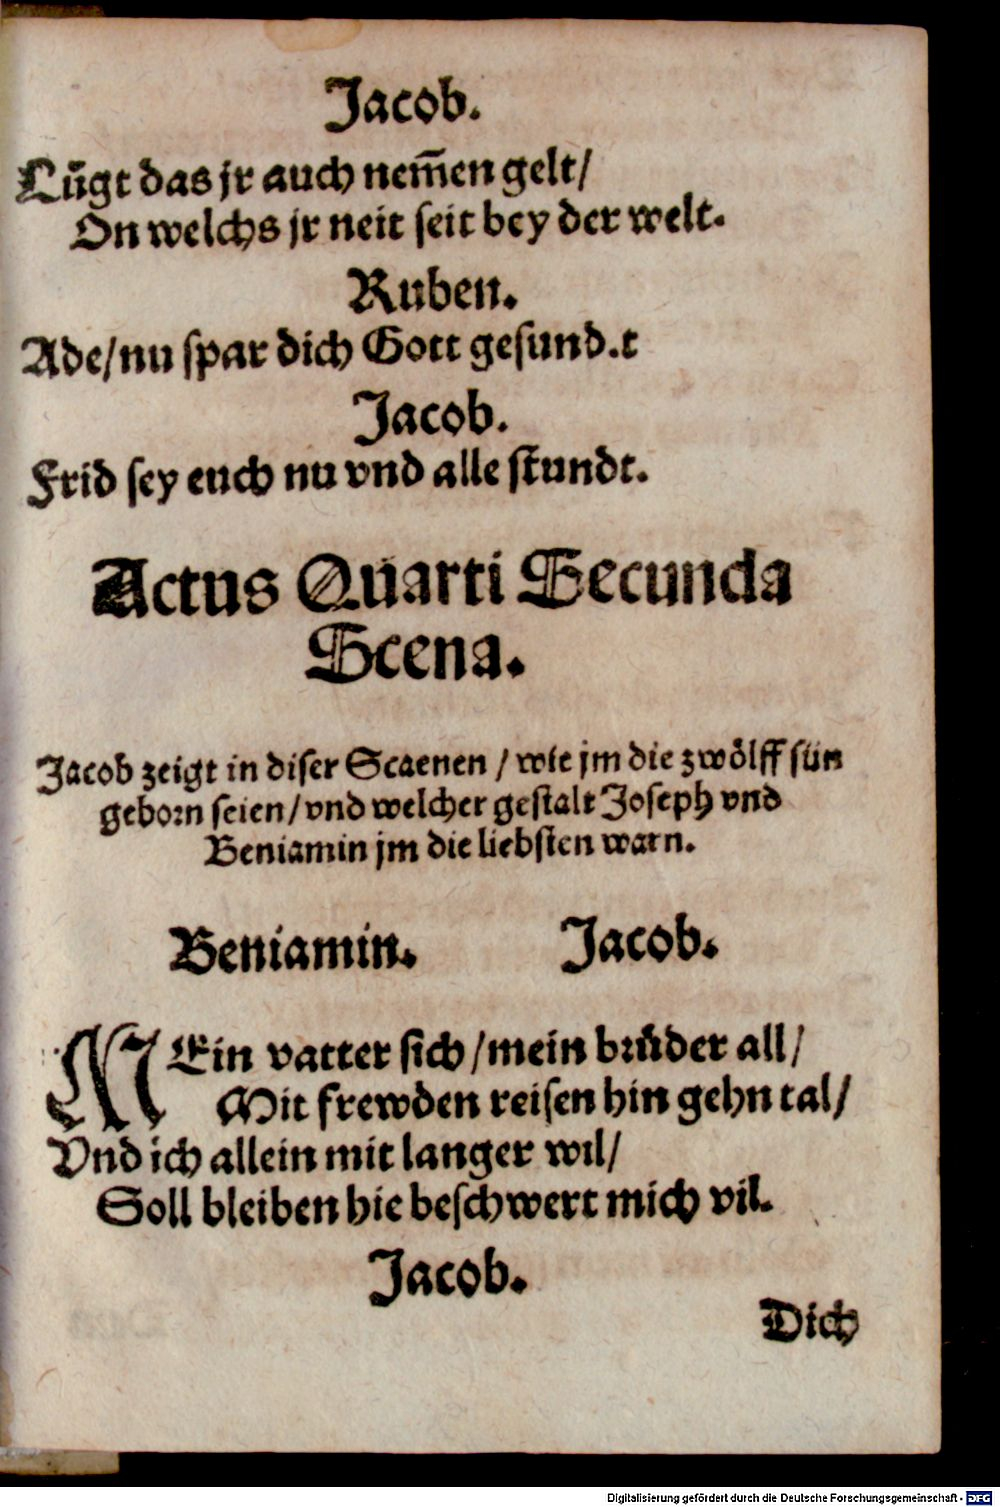 Jacob.
Lůgt das jr auch nem̃en gelt/
On welchs jr neit seit bey der welt.
Ruben.
Ade/nu spar dich Gott gesund.t
Jacob.
Frid sey euch nu vnd alle stundt.
Actus Quarti Secunda
Scena.
Jacob zeigt in diser Scaenen / wie jm die zwölff sün
geborn seien/vnd welcher gestalt Joseph vnd
Beniamin jm die liebsten warn.
Beniamin. Jacob.
MEin vatter sich/mein brůder all/
Mit frewden reisen hin gehn tal/
Vnd ich allein mit langer wil/
Soll bleiben hie beschwert mich vil.
Jacob.
Dich
Digitalisierung gefördert durch die Deutsche Forschungsgemeinschaft - DFG